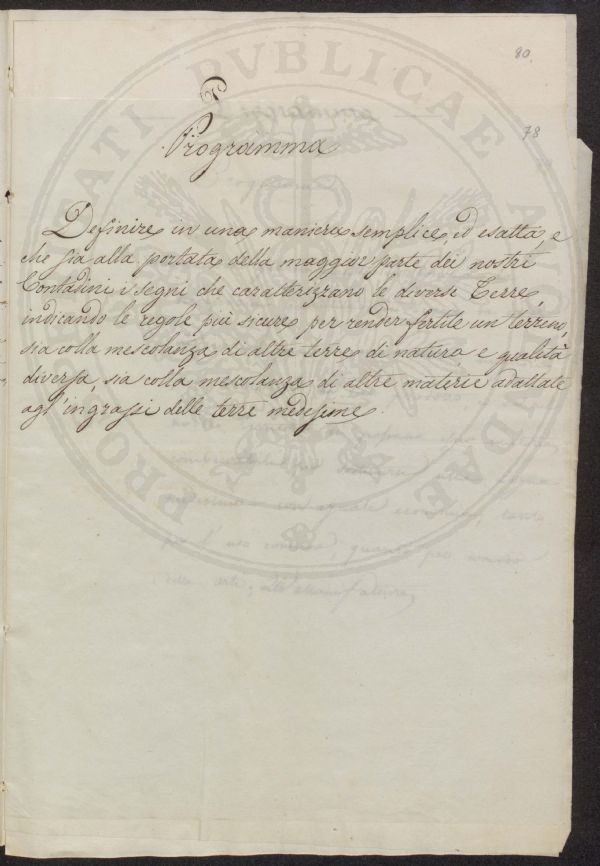 80.
78
Programma
Definire in una maniera semplice, ed esatta, e
che sia alla portata della maggior parte dei nostri
Contadini i segni che caratterizzano le diverse Terre,
indicando le regole più sicure per render fertile un terreno,
sia colla mescolanza di altre terre di natura e qualità
diversa, sia colla mescolanza di altre materie adattate
agl'ingrassi delle terre medesime.
PROSPERITATI PUBLICAE AUGENDAE